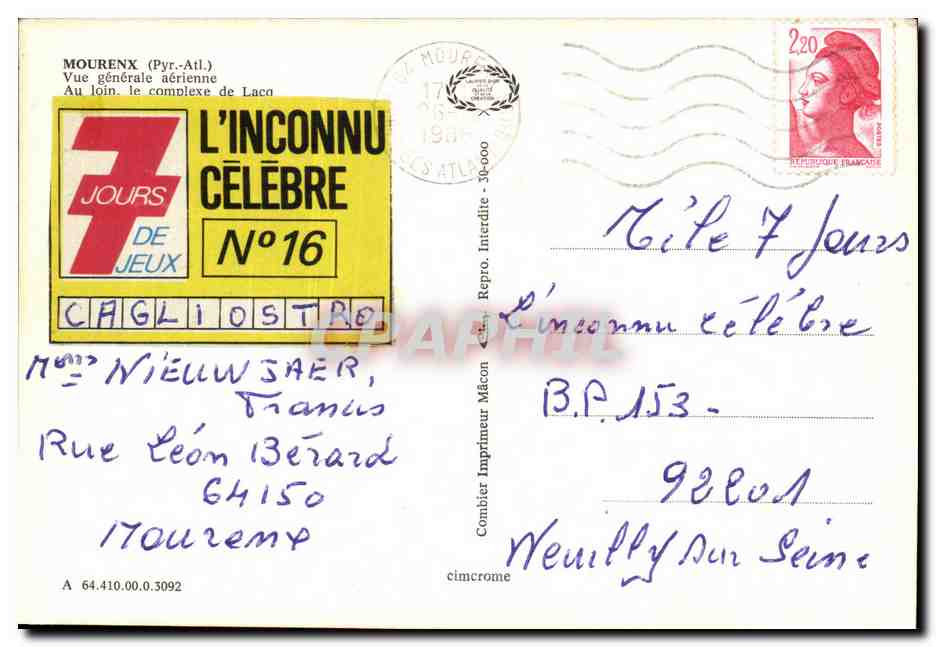 MOURENX (Pyr.-Atl.)
Vue générale aérienne
Au loin, le complexe de Lacq
7
JOURS
DE
JEUX
L'INCONNU
CÉLÈBRE
N° 16
CAGLIOSTRO
NIEUWJAER,
Francis
Rue Léon Bérard
64150
Mourenx
A 64.410.00.0.3092
64 MOURENX
17
26
198
ATLA
Combier Imprimeur Mâcon
Repro. Interdite - 30-000
cimcrome
2,20
POSTES
REPUBLIQUE FRANÇAISE
Télé 7 Jours
L'inconnu célèbre
B.P. 153 -
92201
Neuilly sur Seine
CPAPHIL